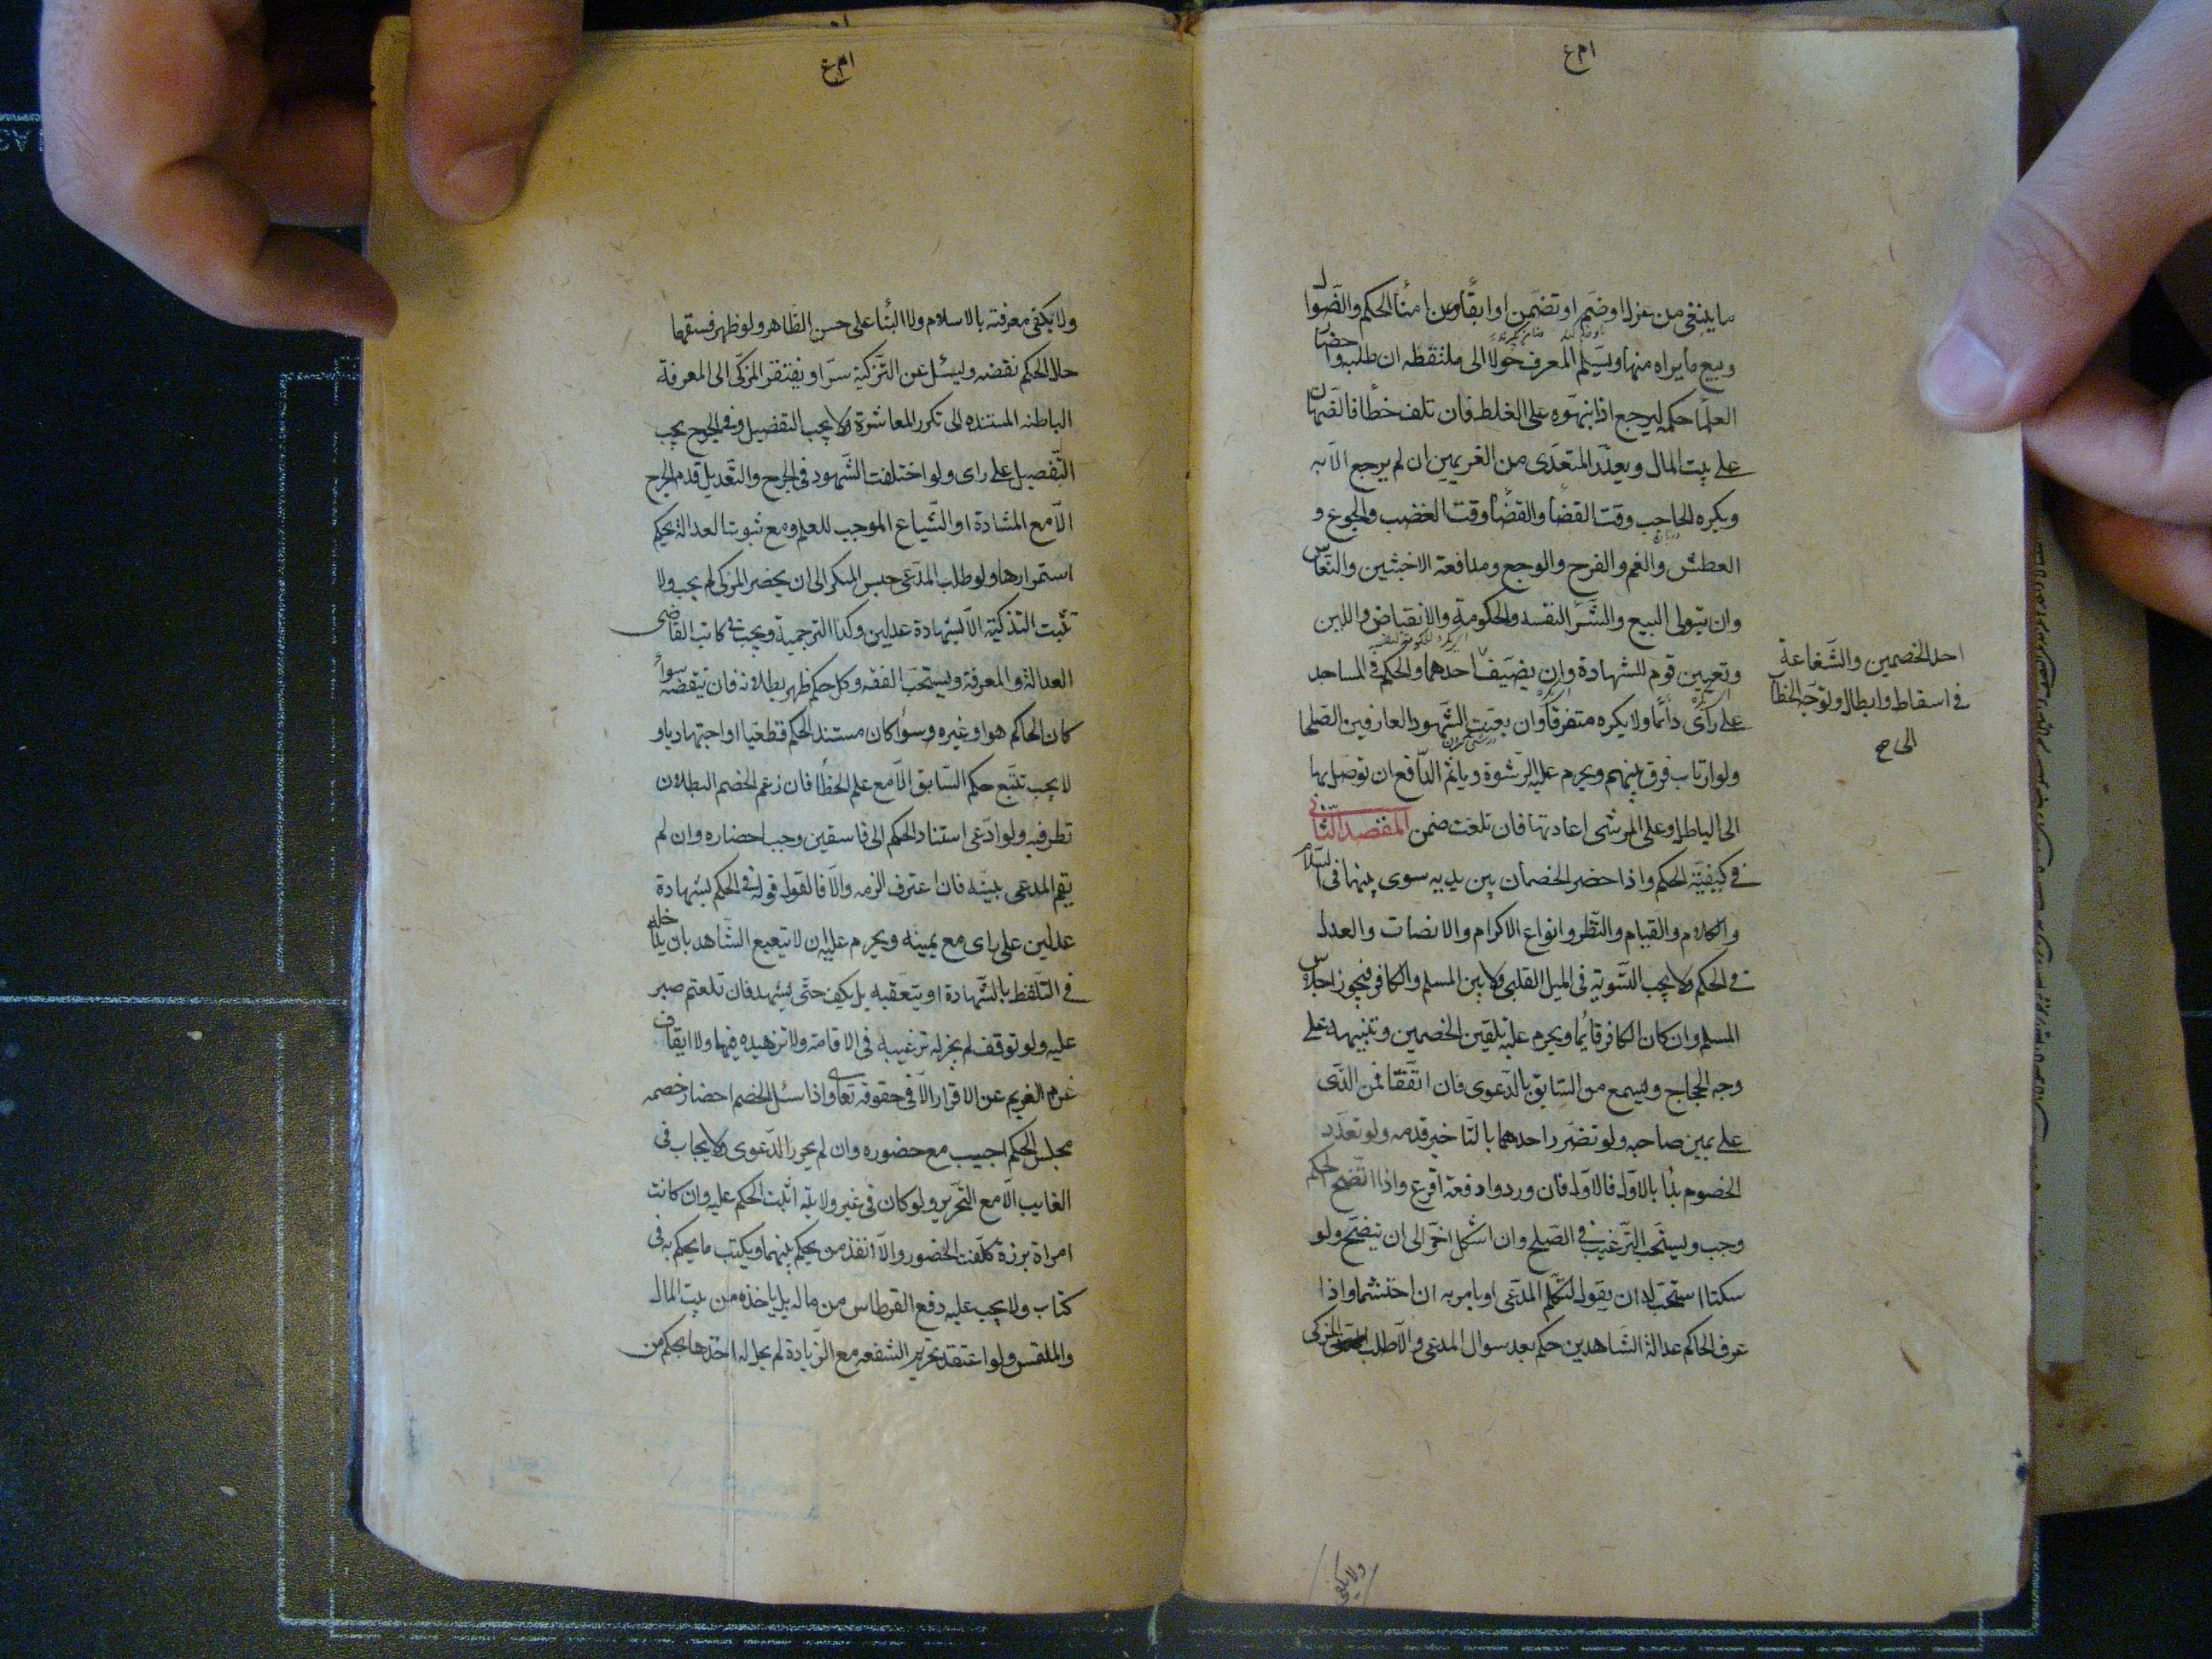 ام ع
ما ينبغى من عزل او ضم او تضمين او ابقاء وعن امناء الحكم والضوال
وبيع ما يراه منها ويسلم المعرف حولا الى ملتقطه ان طلبه واحضار
العلماء حكمه ليرجع اذا نبهوه على الغلط فان تلف خطأ فالضمان
على بيت المال ويعذر المتعدى من الغريمين ان لم يرجع الا به
ويكره الحاجب وقت القضاء والقضاء وقت الغضب والجوع و
العطش والغم والفرح والوجع ومدافعة الاخبثين والنعاس
وان يتولى البيع والشراء لنفسه والحكومة والانقباض واللين
وتعيين قوم للشهادة وان يضيف احدهما والحكم فى المساجد
على رأى دائما ولا يكره متفرقا وان يعنت الشهود العارفين الصلحا
ولو ارتاب فرق بينهم ويحرم عليه الرشوة وياثم الدافع ان توصل بها
الى الباطل وعلى المرتشى اعادتها فان تلفت ضمن المقصد الثانى
فى كيفية الحكم واذا حضر الخصمان بين يديه سوى بينهما فى السلام
والكلام والقيام والنظر وانواع الاكرام والانصات والعدل
فى الحكم ولا يجب التسوية فى الميل القلبى ولا بين المسلم والكافر فيجوز اجلاس
المسلم وان كان الكافر قايما ويحرم عليه تلقين الخصمين وتنبيهه على
وجه الحجاج ويسمع من السابق بالدعوى فان اتفقا فمن الذى
على يمين صاحبه ولو تضرر احدهما بالتاخير قدمه ولو تعدد
الخصوم بدأ بالاول فالاول فان وردوا دفعة اقرع واذا اتضح الحكم
وجب ويستحب الترغيب فى الصلح وان اشكل اخر الى ان يتضح ولو
سكتا استحب له ان يقول لتكلم المدعى او يامر به ان احتشماه واذا
عرف الحاكم عدالة الشاهدين حكم بعد سوال المدعى والا طلب المزكى
احد الخصمين والشفاعة
فى اسقاط وابطال وتوجه الخطاب
الى ح
ولا يكفى
ام ع
ولا يكفى معرفته بالاسلام ولا البناء على حسن الظاهر ولو ظهر فسقهما
حال الحكم نقضه ويسئل عن التزكية سرا ويفتقر المزكى الى المعرفة
الباطنه المستنده الى تكرر المعاشرة ولا يجب التفصيل وفى الجرح يجب
التفصيل على راى ولو اختلفت الشهود فى الجرح والتعديل قدم الجرح
الا مع المشادة او الشياع الموجب للعلم ومع ثبوت العدالة يحكم
استمرارها ولو طلب المدعى حبس المنكر الى ان يحضر المزكى لم يجب ولا
تثبت التذكية الا بشهادة عدلين وكذا الترجمة ويجب فى كاتب القاضى
العدالة والمعرفة ويستحب الفقه وكل حكم ظهر بطلانه فان ينقضه سواء
كان الحاكم هو او غيره وسواء كان مستند الحكم قطعيا او اجتهاديا و
لا يجب تتبع حكم السابق الا مع علم الخطأ فان زعم الخصم البطلان
نظر فيه ولو ادعى استناد الحكم الى فاسقين وجب احضاره وان لم
يقم المدعى بينه فان اعترف الزمه والا فالقول قوله فى الحكم بشهادة
عدلين على راى مع يمينه ويحرم عليه ان لا يتعتع الشاهد بان يداخله
فى التلفظ بالشهادة او يتعقبه بل يكف حتى يشهد فان تلعثم صبر
عليه ولو توقف لم يجز له ترغيبه فى الاقامة ولا تزهيده فيها ولا ايقاف
عزم الغريم عن الاقرار الا فى حقوقه تعالى واذا سئل الخصم احضار خصمه
مجلس الحكم اجيب مع حضوره وان لم يحرر الدعوى ولا يجاب فى
الغايب الا مع التحرير ولو كان فى غير ولايته اثبت الحكم عليه وان كانت
امراة برزة كلفت الحضور والا انفذ من يحكم بينهما ويكتب ما يحكم به فى
كتاب ولا يجب عليه دفع القرطاس من ماله بل ياخذه من بيت المال
والملتمس ولو اعتقد تحريم الشفعه مع الزيادة لم يحل له اخذها بحكم من